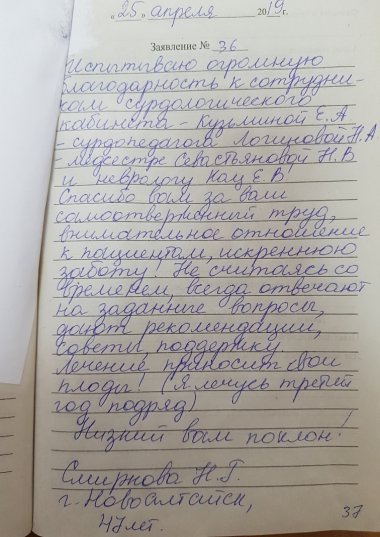 „25" апреля 2019г.
Заявление № 36
Испытываю огромную
благодарность к сотрудни-
кам сурдологического
кабинета - Кузьминой Е.А
- сурдопедагога Логиновой Н.А
- медсестре Севастьяновой Н.В
и неврологу Кац Е.В!
Спасибо вам за ваш
самоотверженный труд,
внимательное отношение
к пациентам, искреннюю
заботу! Не считаясь со
временем, всегда отвечают
на заданные вопросы,
дают рекомендации,
советы, поддержку.
Лечение приносит свои
плоды! (Я лечусь третий
год подряд)
Низкий вам поклон!
Смирнова Н.Г.
г. Новоалтайск,
47 лет.
37